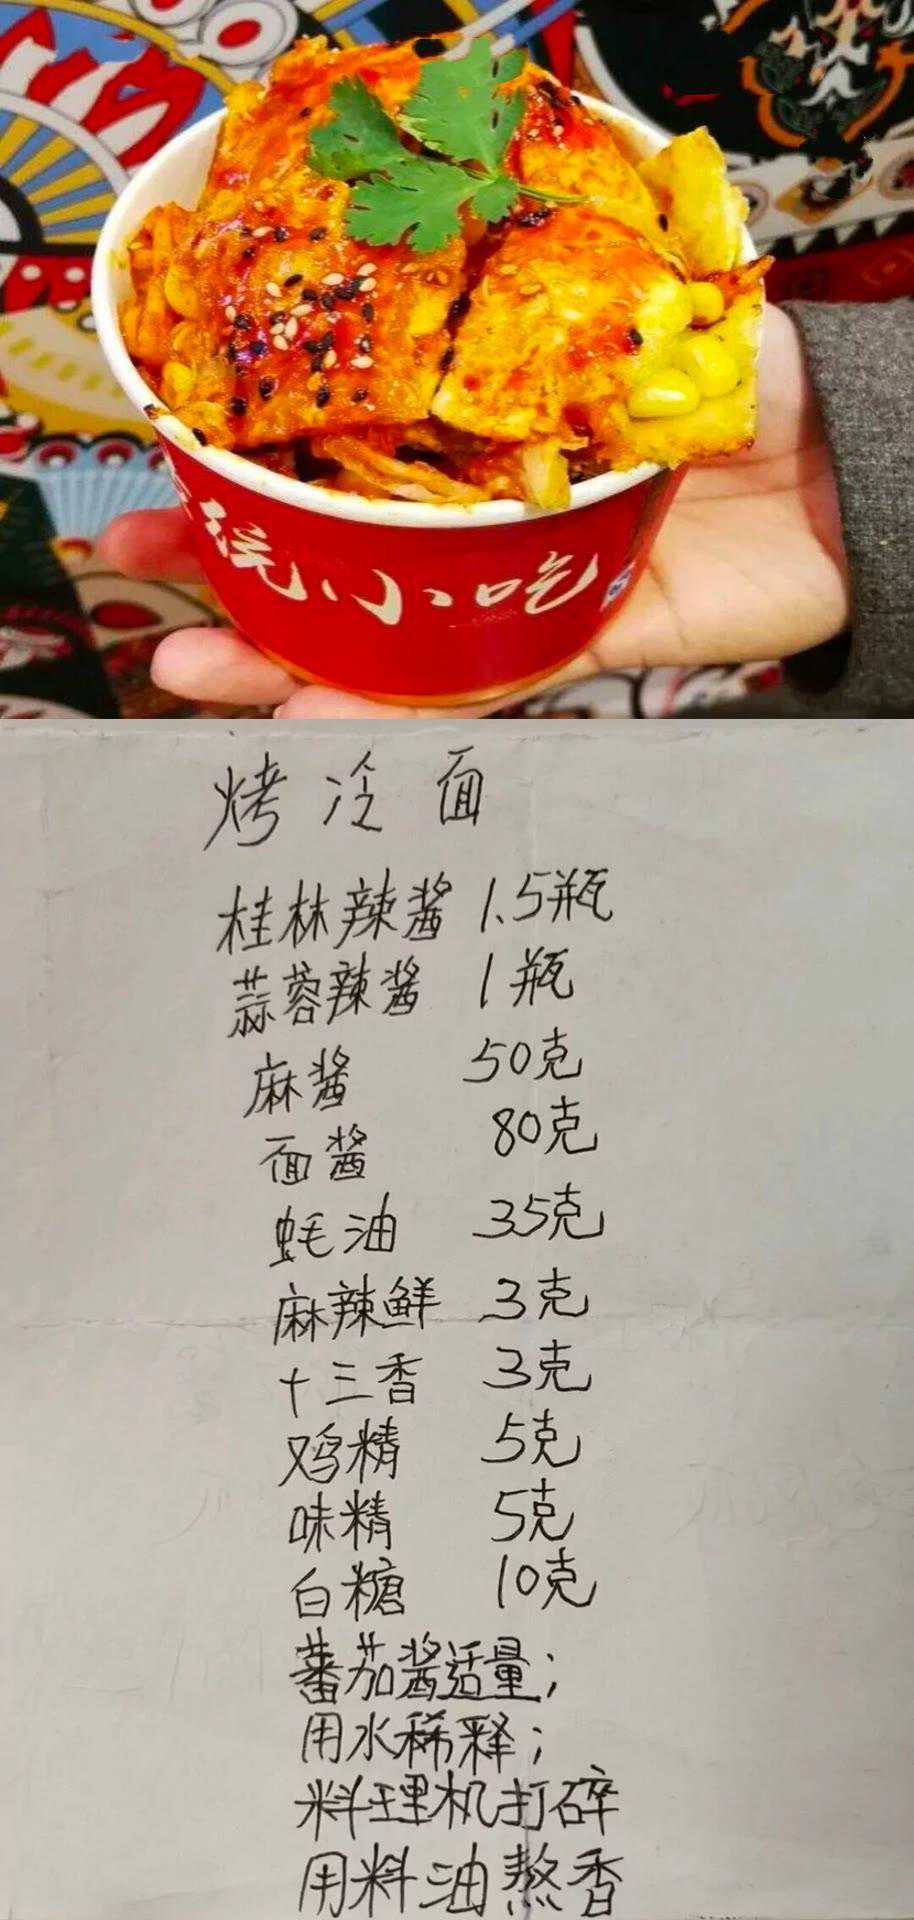 统小吃
烤冷面
桂林辣酱 1.5瓶
蒜蓉辣酱 1瓶
麻酱 50克
面酱 80克
蚝油 35克
麻辣鲜 3克
十三香 3克
鸡精 5克
味精 5克
白糖 10克
蕃茄酱适量；
用水稀释；
料理机打碎
用料油熬香